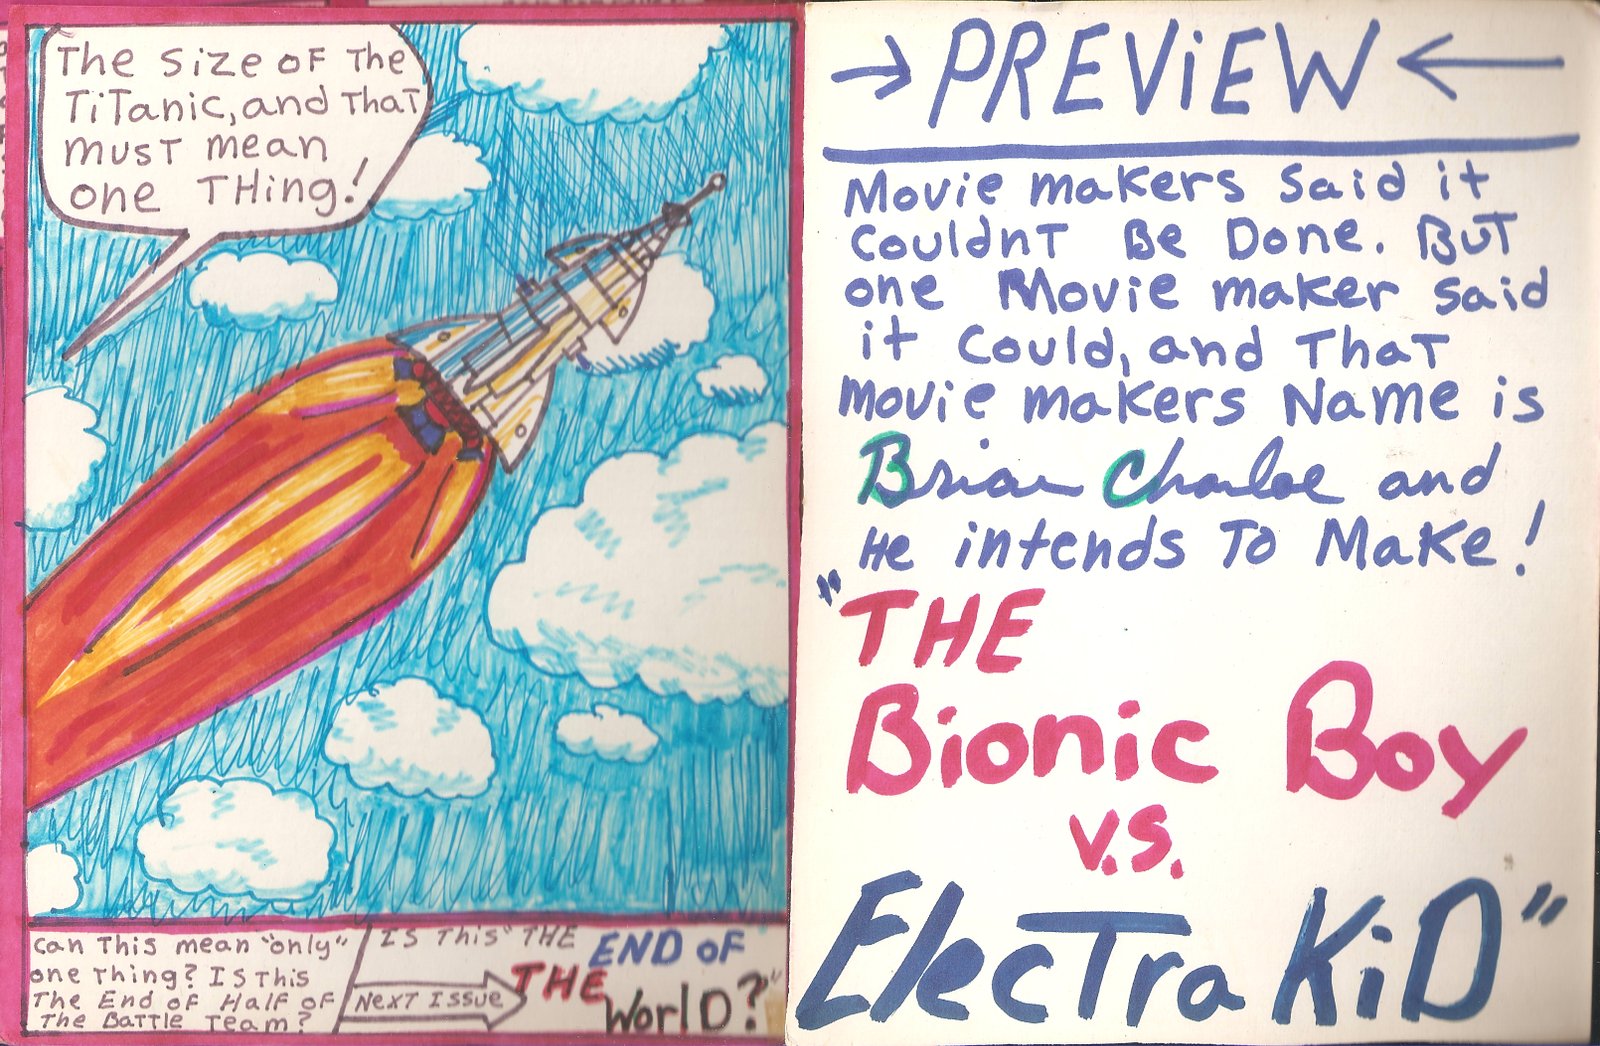 The Size of The
Titanic, and That
must mean
one Thing!
Can This mean "only"
one Thing? Is This
The End of Half of
The Battle Team?
Is This "The
END OF
THE
World?"
Next Issue
→ PREVIEW ←
Movie makers Said it
Couldnt Be Done. But
one Movie maker Said
it Could, and That
Movie makers Name is
Brian and
He intends To Make!
"THE
Bionic Boy
v.s.
Electra Kid"